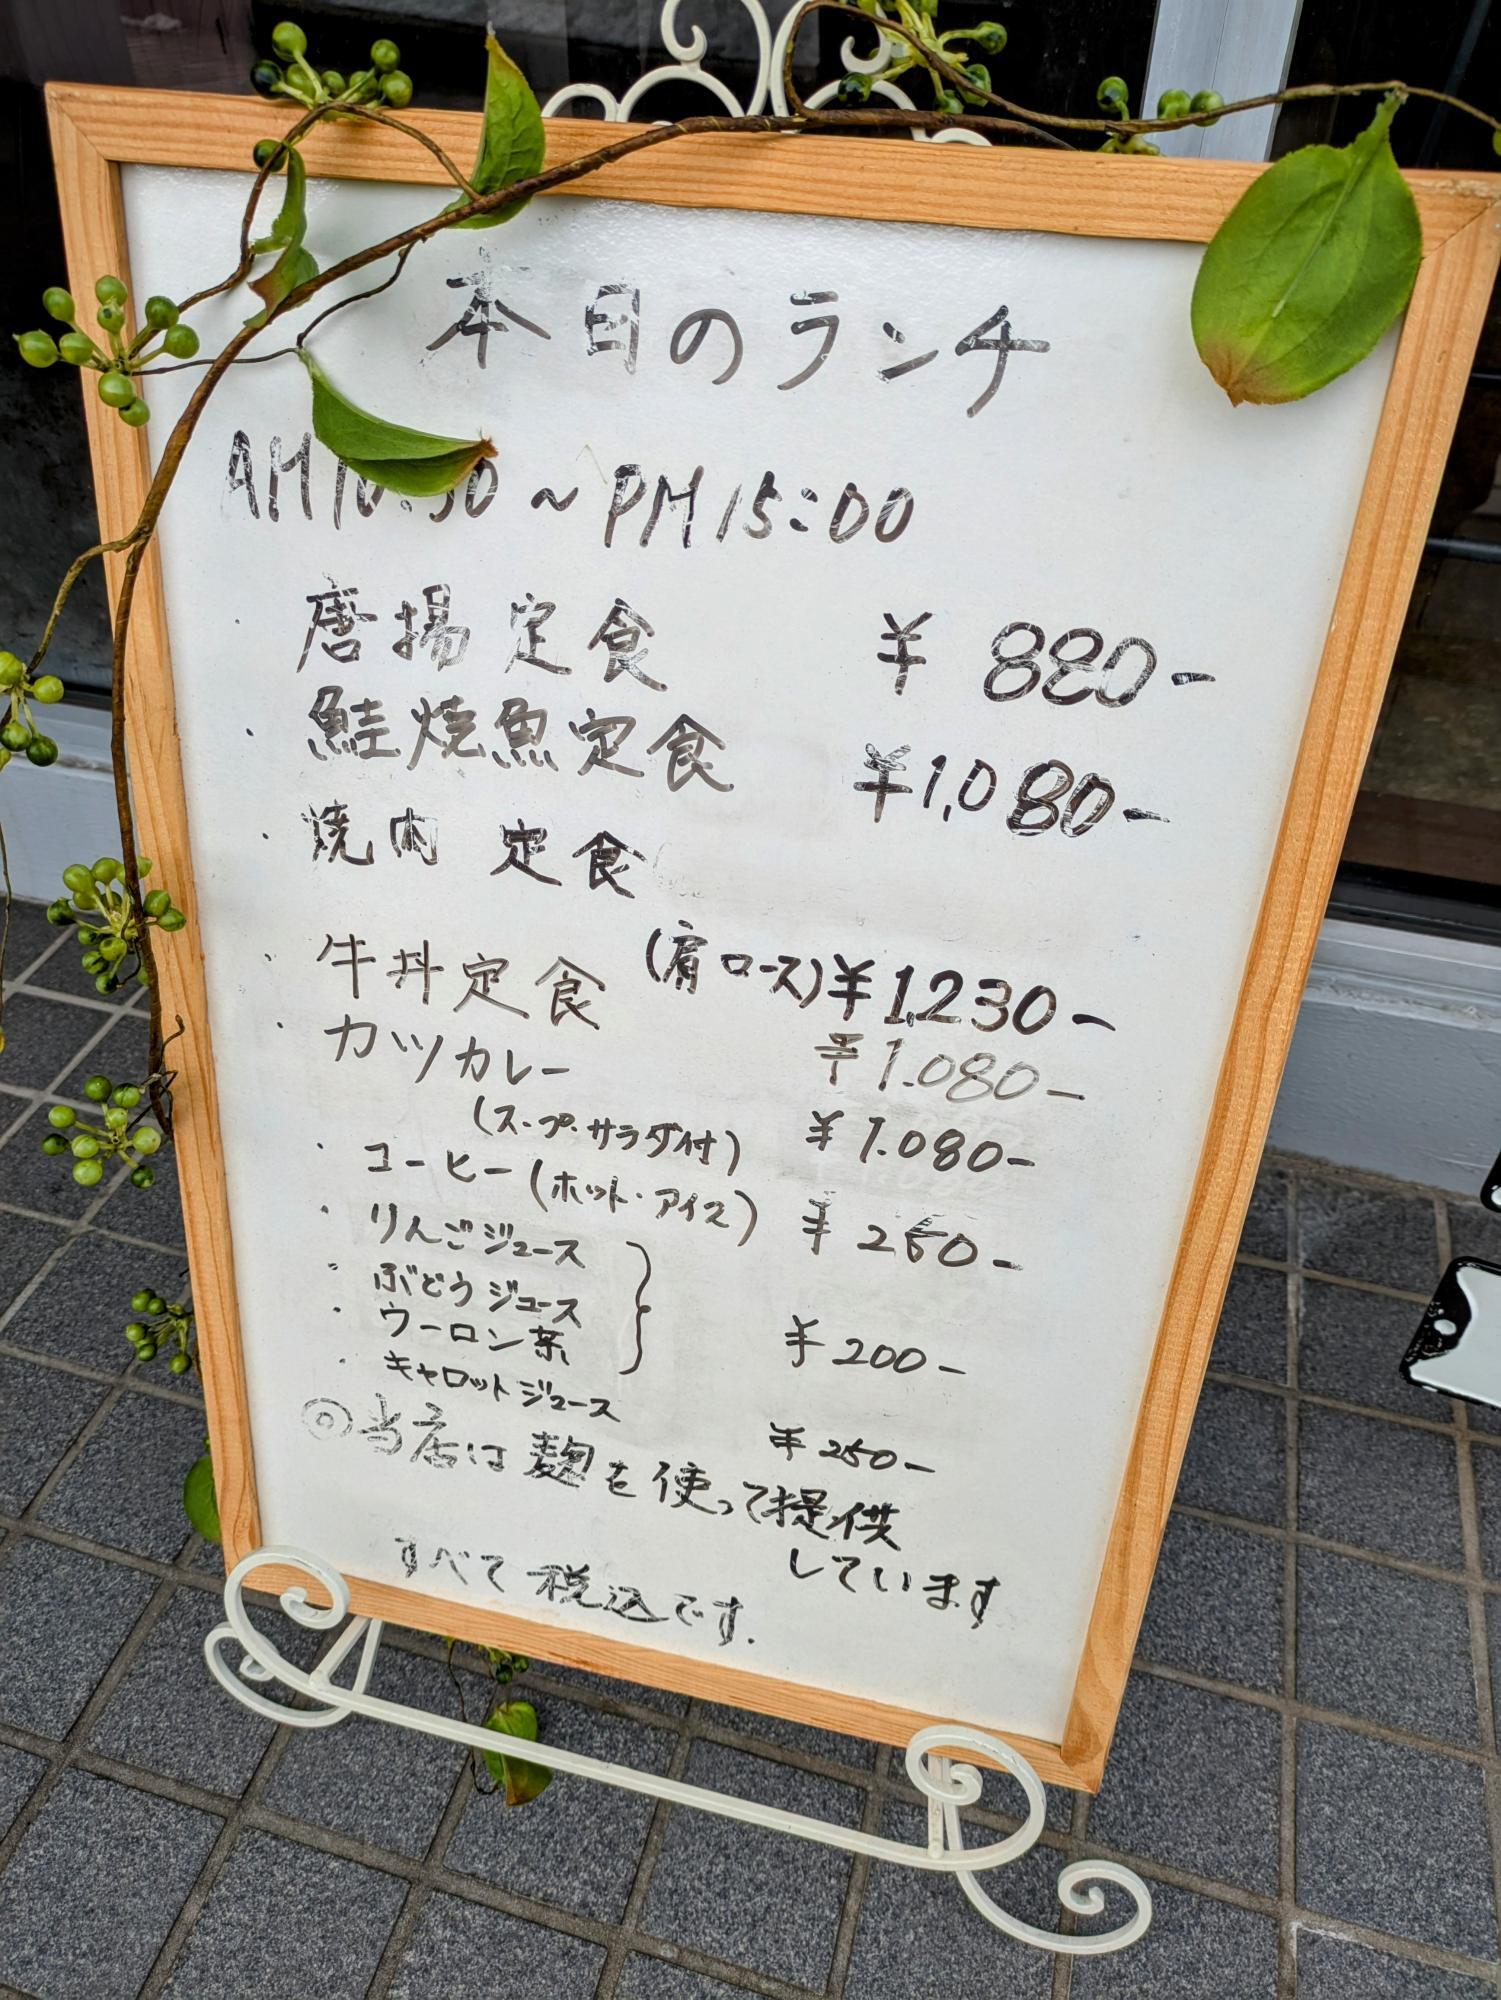 本日のランチ
AM10:30～PM15:00
・唐揚定食 ¥880-
・鮭焼魚定食 ¥1,080-
・焼肉定食
(肩ロース)¥1,230-
・牛丼定食 ¥1.080-
・カツカレー
(スープ・サラダ付) ¥1.080-
・コーヒー(ホット・アイス) ¥250-
・りんごジュース
・ぶどうジュース
・ウーロン茶 ¥200-
・キャロットジュース ¥250-
◎当店は麹を使って提供
しています
すべて税込です.